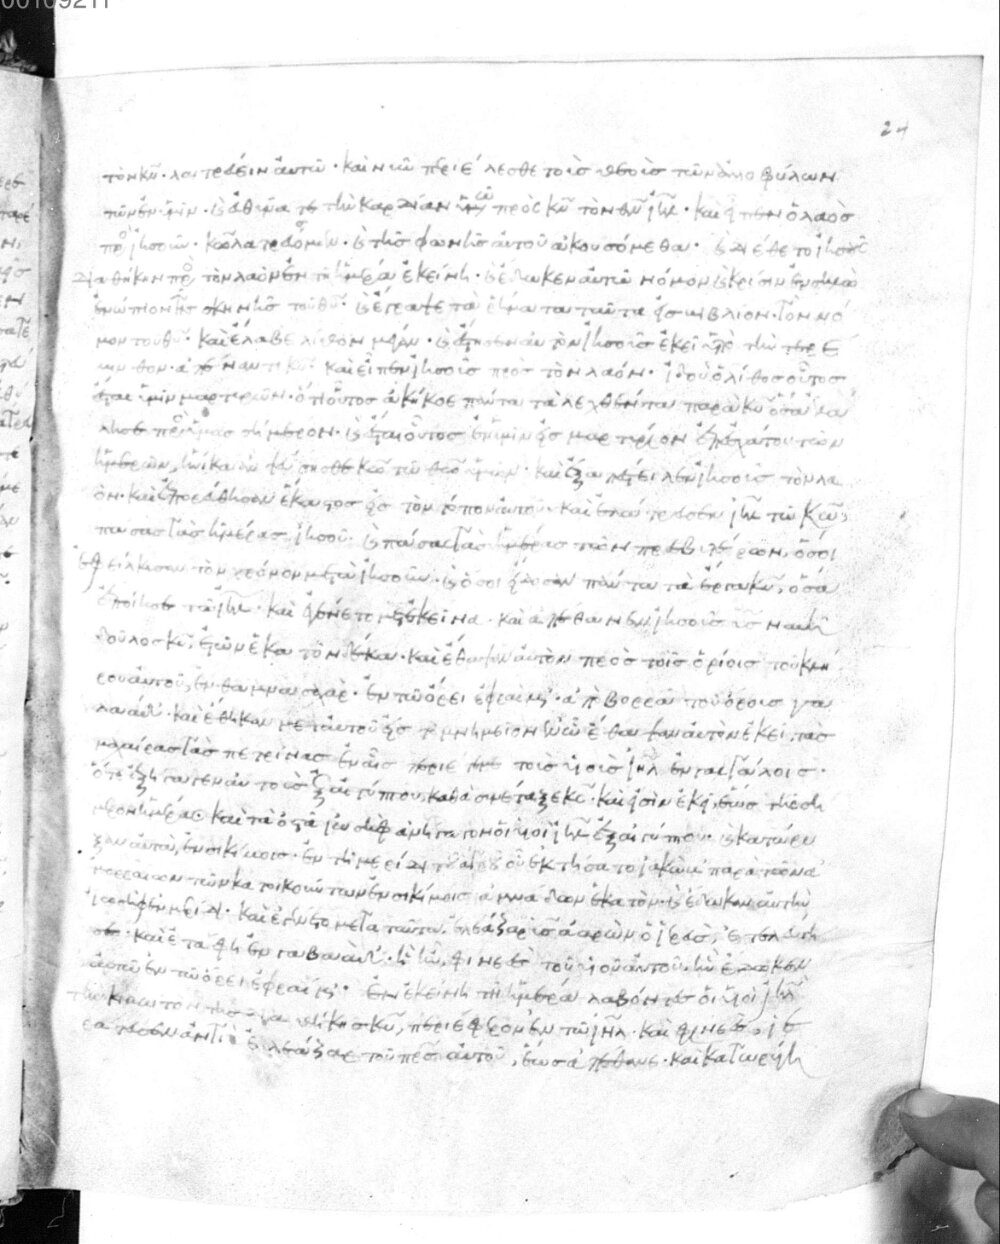 24
τὸν κν̅· λατρεύειν αὐτῶ· καὶ νῦν περιέλεσθε τοὺσ θεοὺσ τῶν ἀλλοφύλων
τῶν ἐν ὑμῖν· καὶ εὐθύνατε τὴν καρδίαν ὑμῶν πρὸς κν̅ τὸν θν̅ ιη̅λ· καὶ εἶπεν ὁ λαὸσ
πρὸσ ἰησοῦν· κω̅ λατρεύσομεν· καὶ τῆσ φωνῆσ αὐτοῦ ἀκουσόμεθα· καὶ διέθετο ἰησοῦσ
διαθήκην πρὸσ τὸν λαὸν ἐν τῆ ἡμέρα ἐκείνη· καὶ ἔδωκεν αὐτῶ νόμον καὶ κρίσιν ἐν σηλὼ
ἐνώπιον τῆσ σκηνῆσ τοῦ θυ̅· καὶ ἔγραψε τὰ ῥήματα ταῦτα εἰσ βιβλίον· τὸν νό
μον τοῦ θυ̅· καὶ ἔλαβε λίθον μέγαν· καὶ ἔστησεν αὐτὸν ἰησοῦσ ἐκεῖ ὑπὸ τὴν τερέ
μινθον· ἀπέναντι κυ̅· καὶ εἶπεν ἰησοῦσ πρὸσ τὸν λαόν· ἰδοὺ ὁ λίθοσ οὗτοσ
ἔσται ὑμῖν μαρτύριον· ὅτι οὗτοσ ἀκήκοε πάντα τὰ λεχθέντα παρὰ κυ̅ ὅσα ἐλά
λησε πρὸσ ἡμᾶσ σήμερον· καὶ ἔσται οὗτοσ ἐν ὑμῖν εἰσ μαρτύριον ἐπ' ἐσχάτου τῶν
ἡμερῶν, ἡνίκα ἂν ψεύσησθε κω̅ τῶ θεῶ ὑμῶν· καὶ ἐξαπέστειλεν ἰησοῦσ τὸν λα
όν· καὶ ἐπορεύθησαν ἕκαστοσ εἰσ τὸν τόπον αὐτοῦ· καὶ ἐλάτρευσεν ιη̅λ τῶ κω̅,
πάσασ τὰσ ἡμέρασ ἰησοῦ· καὶ πάσασ τὰσ ἡμέρασ τῶν πρεσβυτέρων, ὅσοι
ἐφείλκυσαν τὸν χρόνον μετὰ ἰησοῦν· καὶ ὅσοι εἴδοσαν πάντα τὰ ἔργα κυ̅, ὅσα
ἐποίησε τῶ ιη̅λ· καὶ ἐγένετο μετ' ἐκεῖνα· καὶ ἀπέθανεν ἰησοῦσ υἱὸσ ναυῆ
δοῦλοσ κυ̅, ἐτῶν ἑκατὸν δέκα· καὶ ἔθαψαν αὐτὸν πρὸσ τοῖσ ὁρίοισ τοῦ κλή
ρου αὐτοῦ, ἐν θαμνασαχάρ· ἐν τῶ ὄρει ἐφραίμ· ἀπὸ βορρᾶ τοῦ ὄρουσ γα
λαάδ· καὶ ἔθηκαν μετ' αὐτοῦ εἰσ τὸ μνημεῖον ἐν ὧ ἔθαψαν αὐτὸν ἐκεῖ, τὰσ
μαχαίρασ τὰσ πετρίνασ ἐν αἷσ περιέτεμε τοὺσ υἱοὺσ ιη̅λ ἐν γαλγάλοισ·
ὅτε ἐξήγαγεν αὐτοὺσ ἐξ αἰγύπτου, καθὰ συνέταξε κσ̅· καὶ εἰσὶν ἐκεῖ, ἕωσ τῆσ σή
μερον ἡμέρασ· καὶ τὰ ὀστᾶ ἰωσὴφ ἀνήγαγον οἱ υἱοὶ ιη̅λ ἐξ αἰγύπτου· καὶ κατώρυ
ξαν αὐτὰ, ἐν σικίμοισ· ἐν τῆ μερίδι τοῦ ἀγροῦ οὗ ἐκτήσατο ἰακὼβ παρὰ τῶν ἀ
μορραίων τῶν κατοικούντων ἐν σικίμοισ ἀμνάδων ἑκατόν· καὶ ἔδωκεν αὐτὴν
ἰωσὴφ ἐν μερίδι· καὶ ἐγένετο μετὰ ταῦτα, ἐλεάζαρ υἱὸσ ἀαρὼν ὁ ἱερεὺσ, ἐτελεύτη
σε· καὶ ἐτάφη ἐν γαβαὰθ· τῆ φινεὲσ τοῦ υἱοῦ αὐτοῦ, ἣν ἔδωκεν
αὐτῶ ἐν τῶ ὄρει ἐφραίμ· ἐν ἐκείνη τῆ ἡμέρα λαβόντεσ οἱ υἱοὶ ιη̅λ
τὴν κιβωτὸν τῆσ διαθήκησ κυ̅, περιέφερον ἐν τῶ ιη̅λ· καὶ φινεὲσ, ἱε
ράτευσεν ἀντὶ ἐλεάζαρ τοῦ πρσ̅ αὐτοῦ, ἕωσ ἀπέθανε· καὶ κατωρύγη